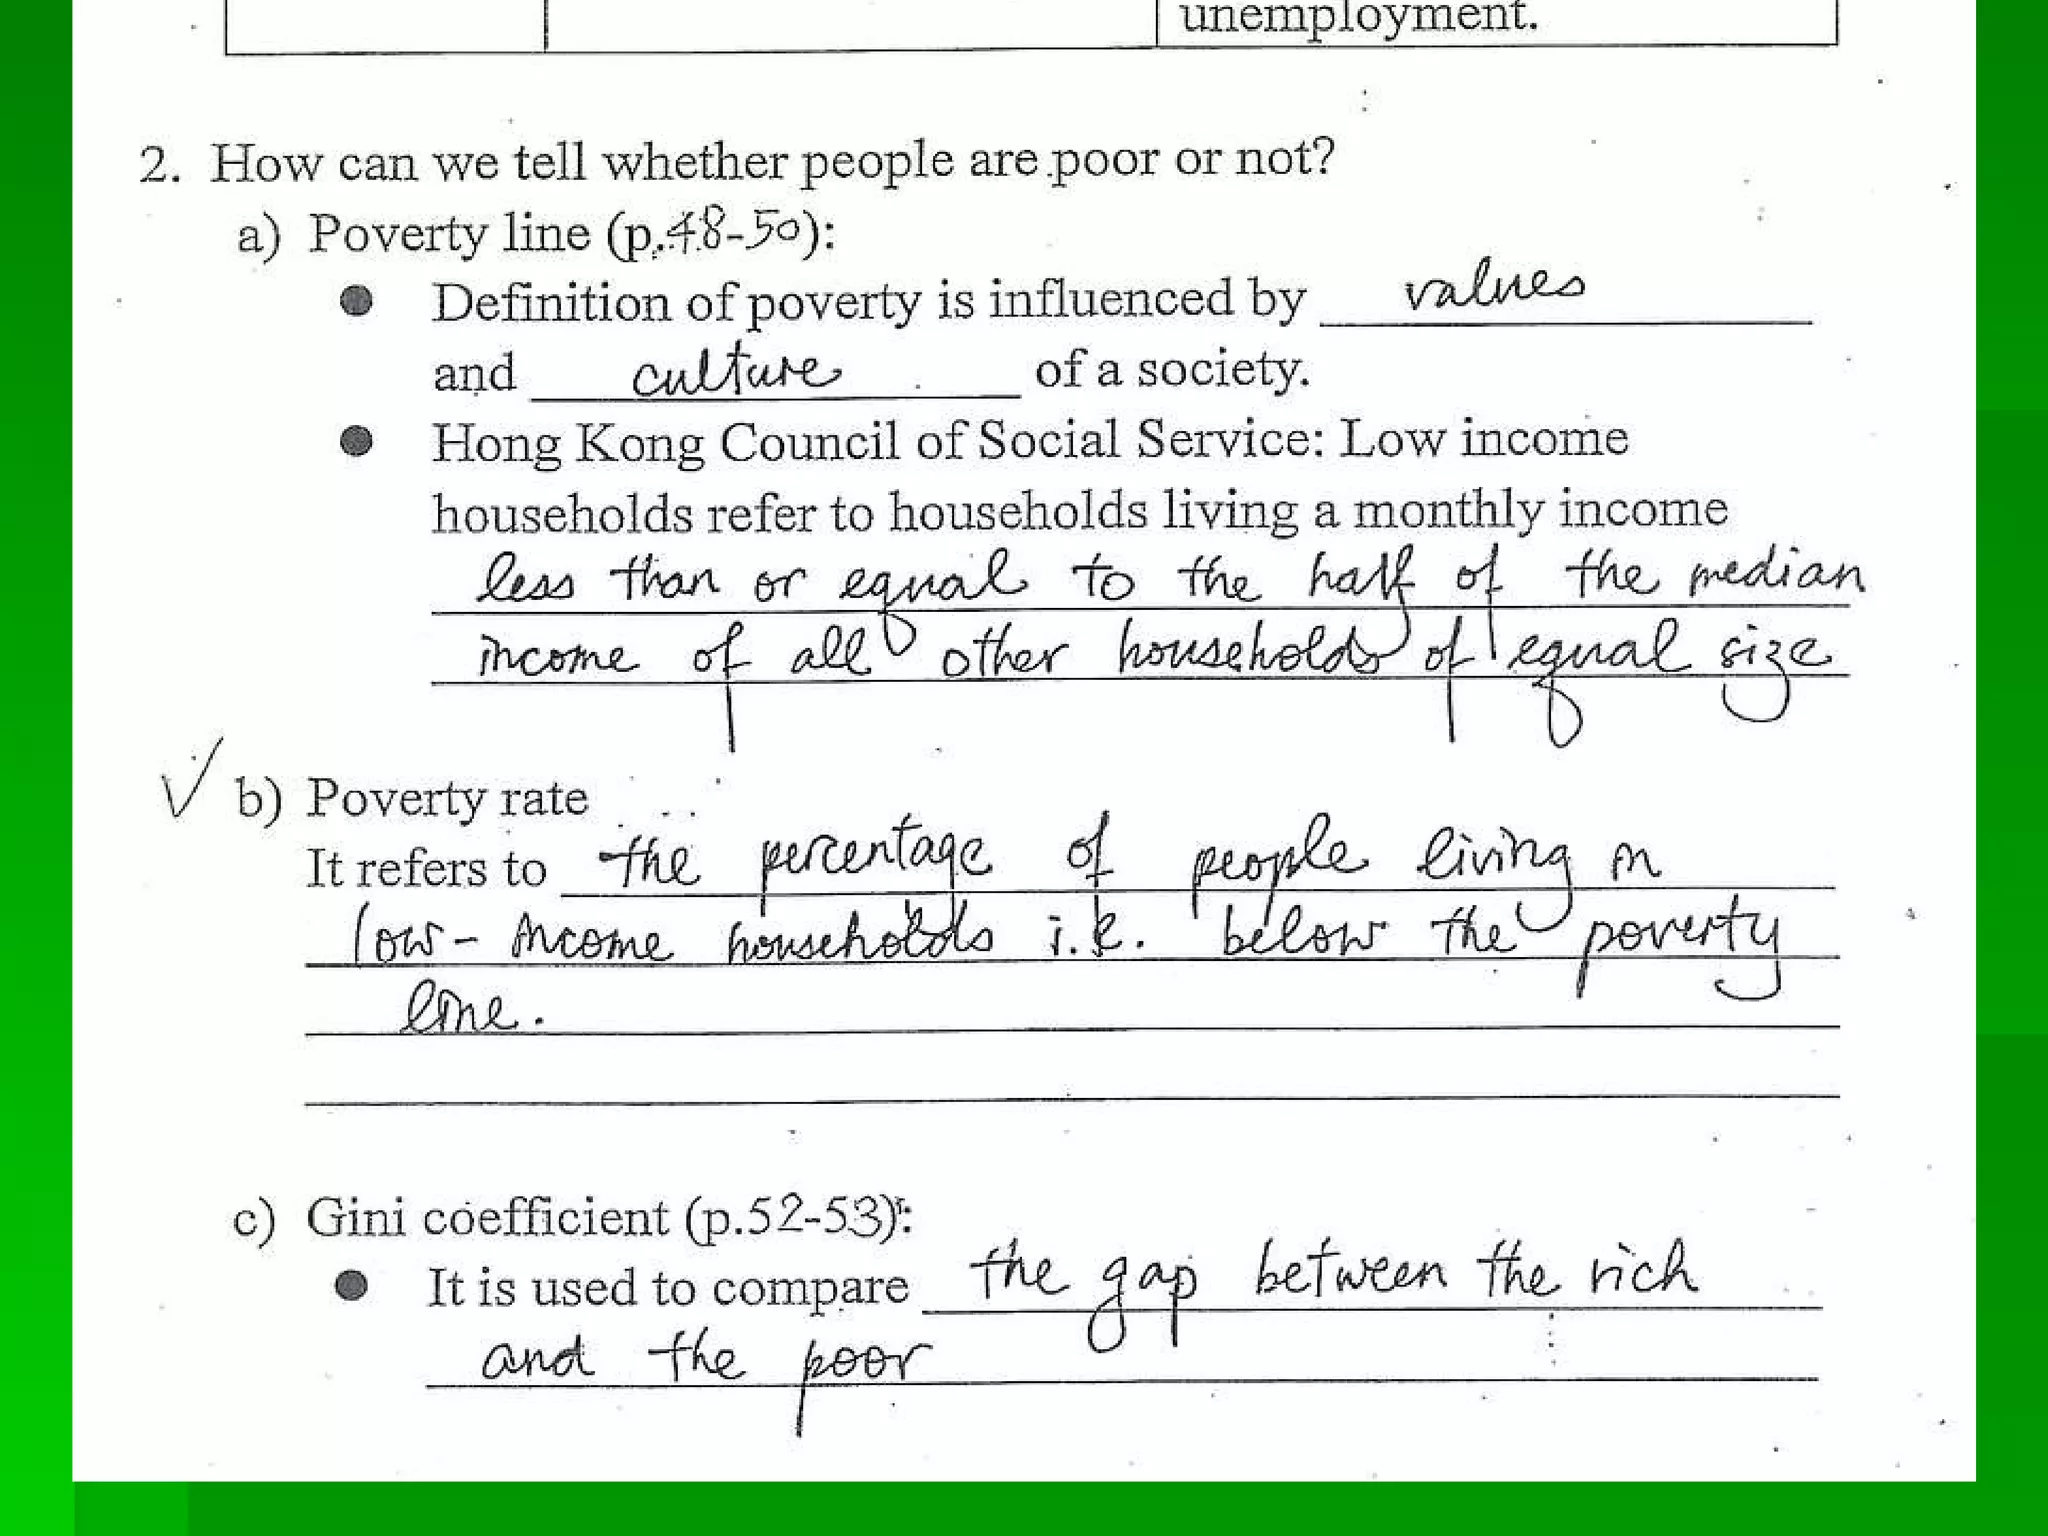 unemployment.
2. How can we tell whether people are poor or not?
a) Poverty line (p.48-50):
● Definition of poverty is influenced by values
and culture of a society.
● Hong Kong Council of Social Service: Low income
households refer to households living a monthly income
less than or equal to the half of the median
income of all other households of equal size
✓ b) Poverty rate
It refers to the percentage of people living in
low-income households i.e. below the poverty
line.
c) Gini coefficient (p.52-53):
● It is used to compare the gap between the rich
and the poor